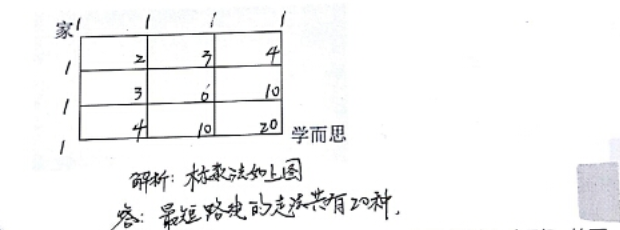 家 1 1 1 1
1 2 3 4
1 3 6 10
1 4 10 20 学而思
解析：标数法如上图
答：最短路线的走法共有20种.